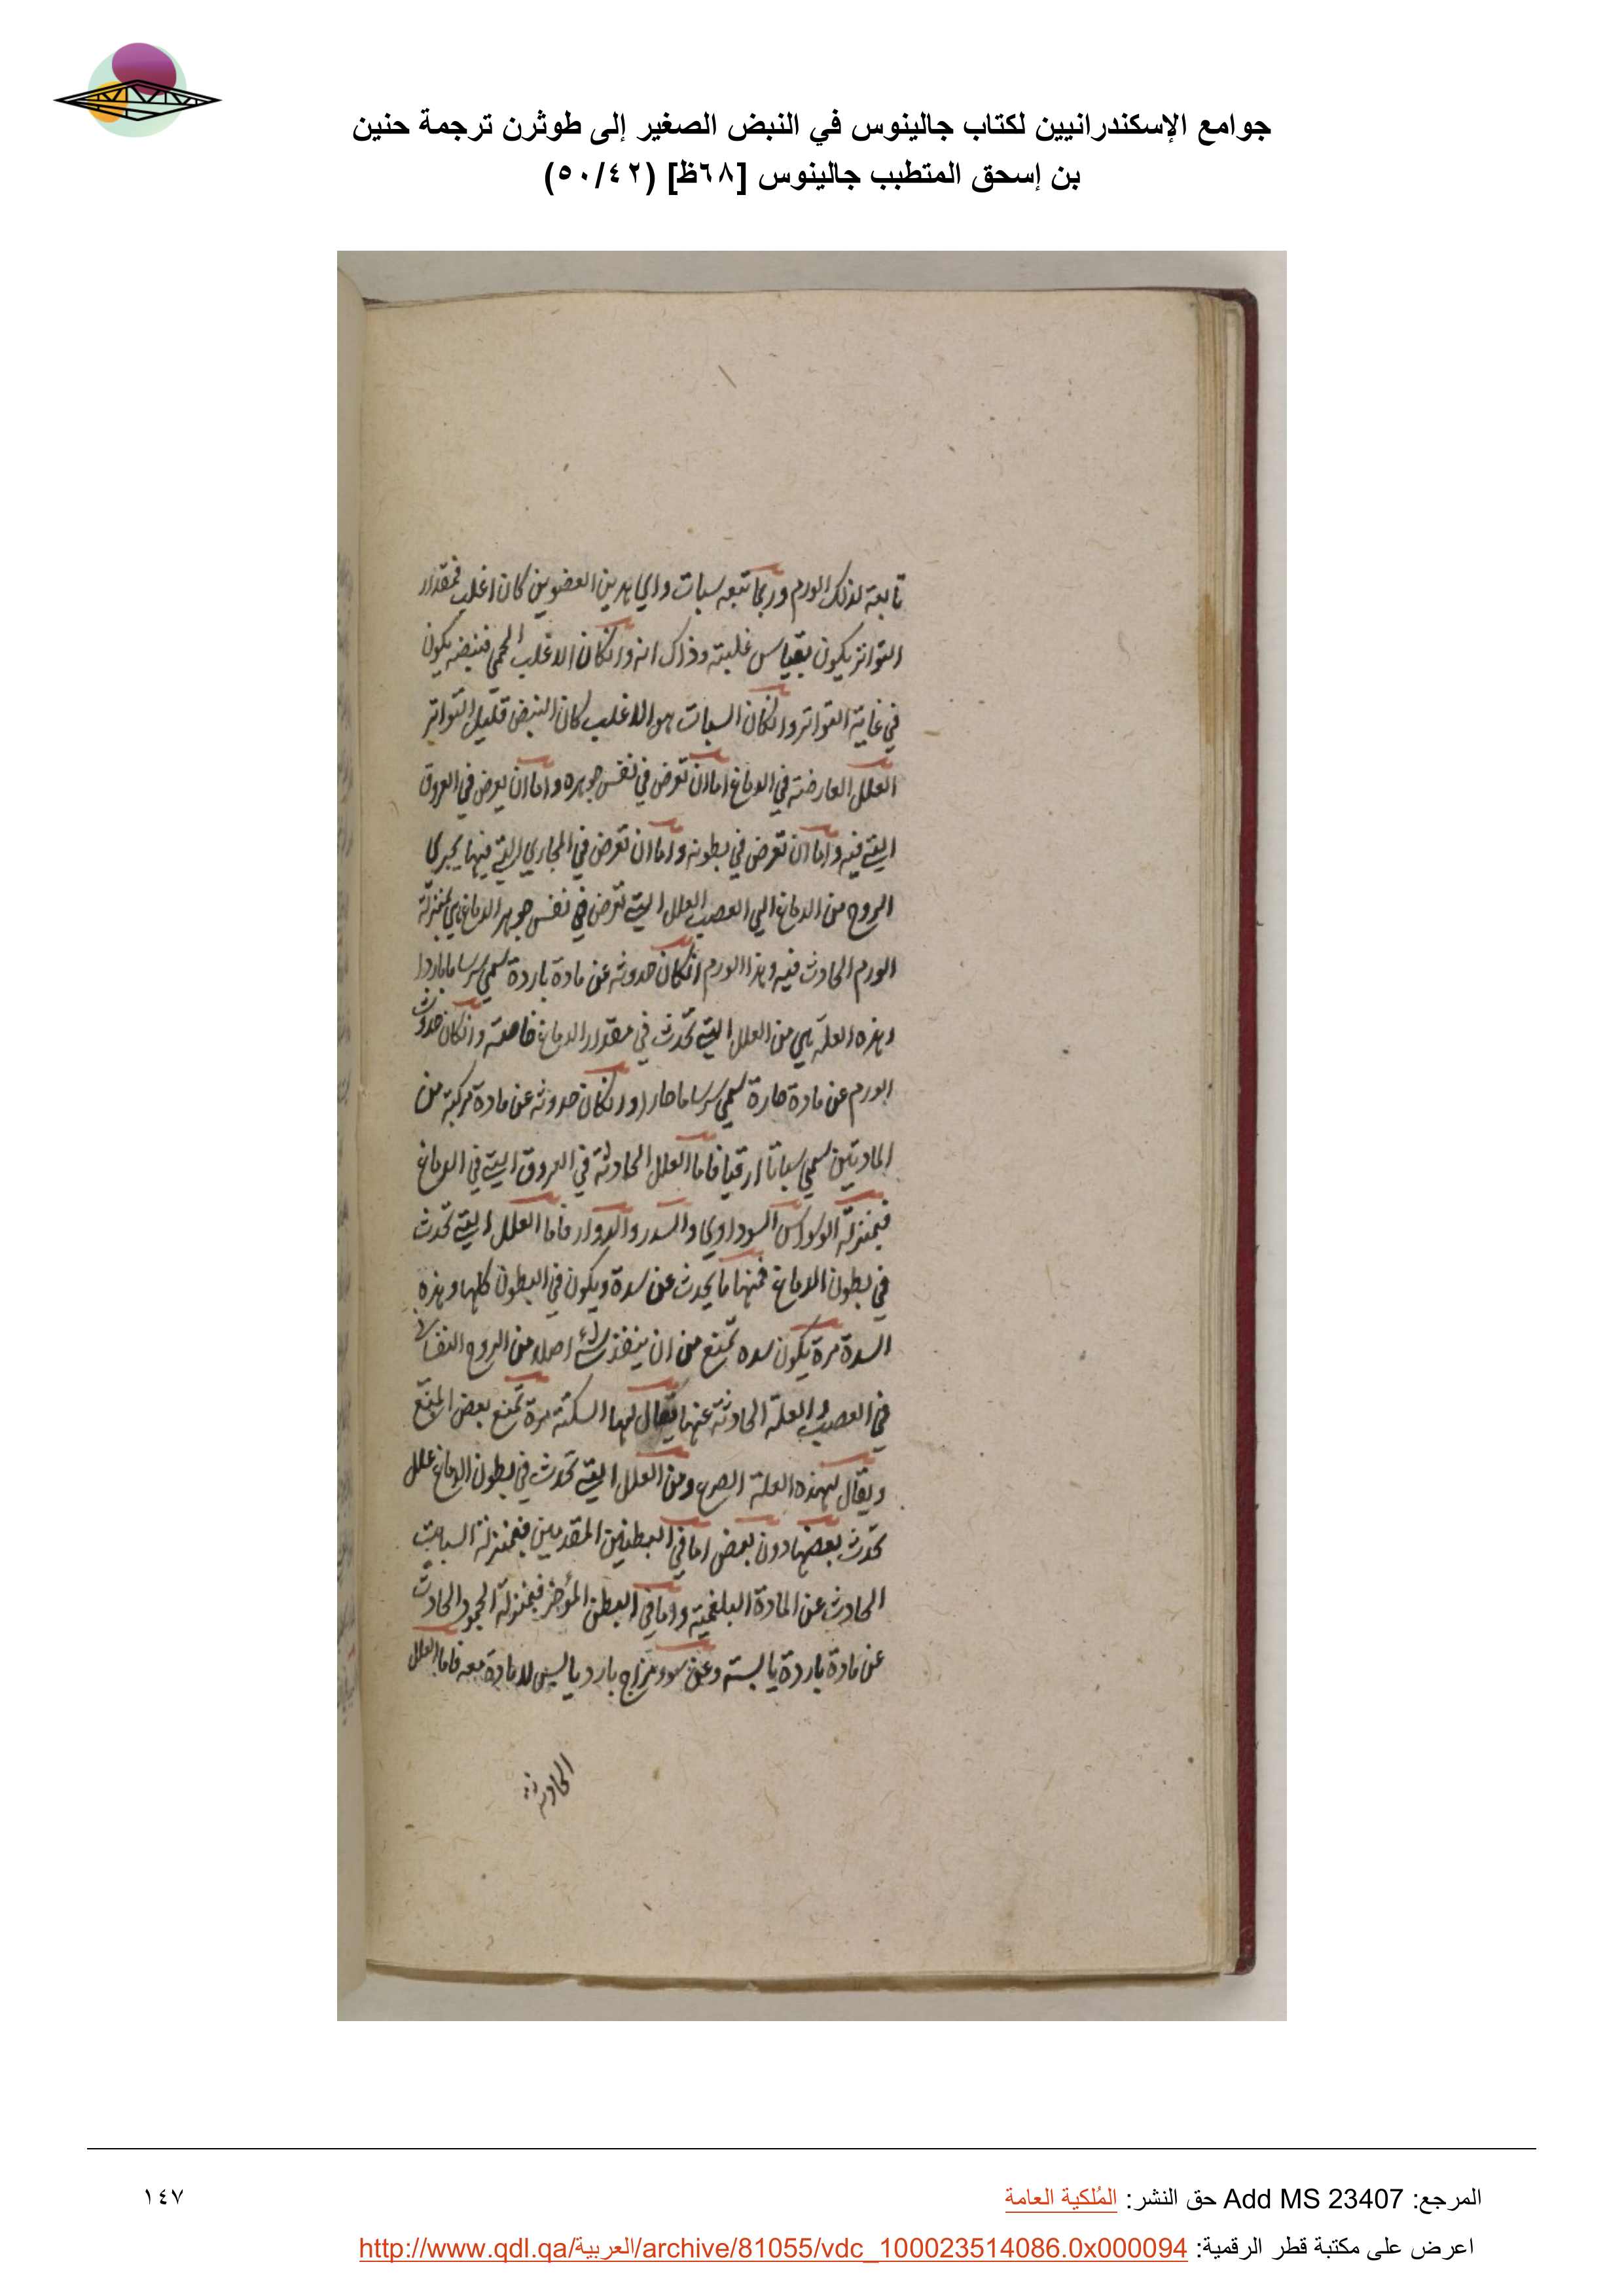 جوامع الإسكندرانيين لكتاب جالينوس في النبض الصغير إلى طوثرن ترجمة حنين
بن إسحق المتطبب جالينوس [٦٨ظ] (٥٠/٤٢)
تابعة لذلك الورم وربما تبعه سبات واي هذين العضوين كان اغلب فمقدار
التواتر يكون بقياس غلبته وذاك انه وانكان الاغلب الحمي فنبضه يكون
في غاية التواتر وانكان السبات هو الاغلب كان النبض قليل التواتر
العلل العارضة في الدماغ اما ان تعرض في نفس جوهره واما ان يعرض في العروق
التي فيه واما ان تعرض في بطونه واما ان تعرض في المجاري التي فيها يجري
الروح من الدماغ الي العصب العلل التي تعرض في نفس جوهر الدماغ هي بمنزلة
الورم الحادث فيه وهذا الورم انكان حدوثه عن مادة باردة سمي سرساما باردا
وهذه العلة هي من العلل التي تحدث في مقدار الدماغ خاصة وانكان حدوث
الورم عن مادة حارة سمي سرساما حارا وانكان حدوثه عن مادة مركبة من
المادتين سمي سباتا ارقيا فاما العلل الحادثة في العروق التي في الدماغ
فبمنزلة الوسواس السوداوي والسدر والدوار فاما العلل التي تحدث
في بطون الدماغ فمنها ما يحدث عن سدة ويكون في البطون كلها وهذه
السدة مرة يكون سده تمنع من ان ينفذ شيء اصلا من الروح النفسا
في العصب والعلة الحادثة عنها يقال لها السكتة مرة تمنع بعض المنع
ويقال لهذه العلة الصرع ومن العلل التي تحدث في بطون الدماغ علل
تحدث بعضها دون بعض اما في البطنين المقدمين فبمنزلة السبات
الحادث عن المادة البلغمية واما في البطن المؤخر فبمنزلة الجمود الحادث
عن مادة باردة يابسة وعن سوء مزاج بارد يابس لا مادة معه فاما العلل
الحادثة
المرجع: Add MS 23407 حق النشر: المُلكية العامة
١٤٧
اعرض على مكتبة قطر الرقمية: http://www.qdl.qa/العربية/archive/81055/vdc_100023514086.0x000094